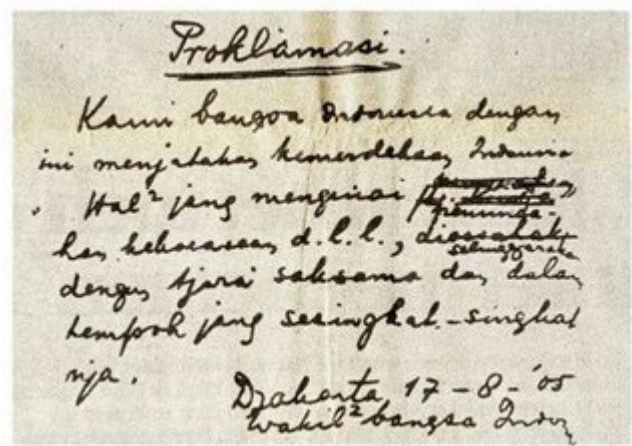 Proklamasi.
Kami bangsa Indonesia dengan
ini menjatakan kemerdekaan Indonesia
Hal² jang mengenai pemindahan
kan kekoeasaan d.l.l., diusahakan
selenggarakan
dengan tjara saksama dan dalam
tempoh jang sesingkat-singkat
nja.
Djakarta, 17 - 8 - '05
Wakil² bangsa Indon